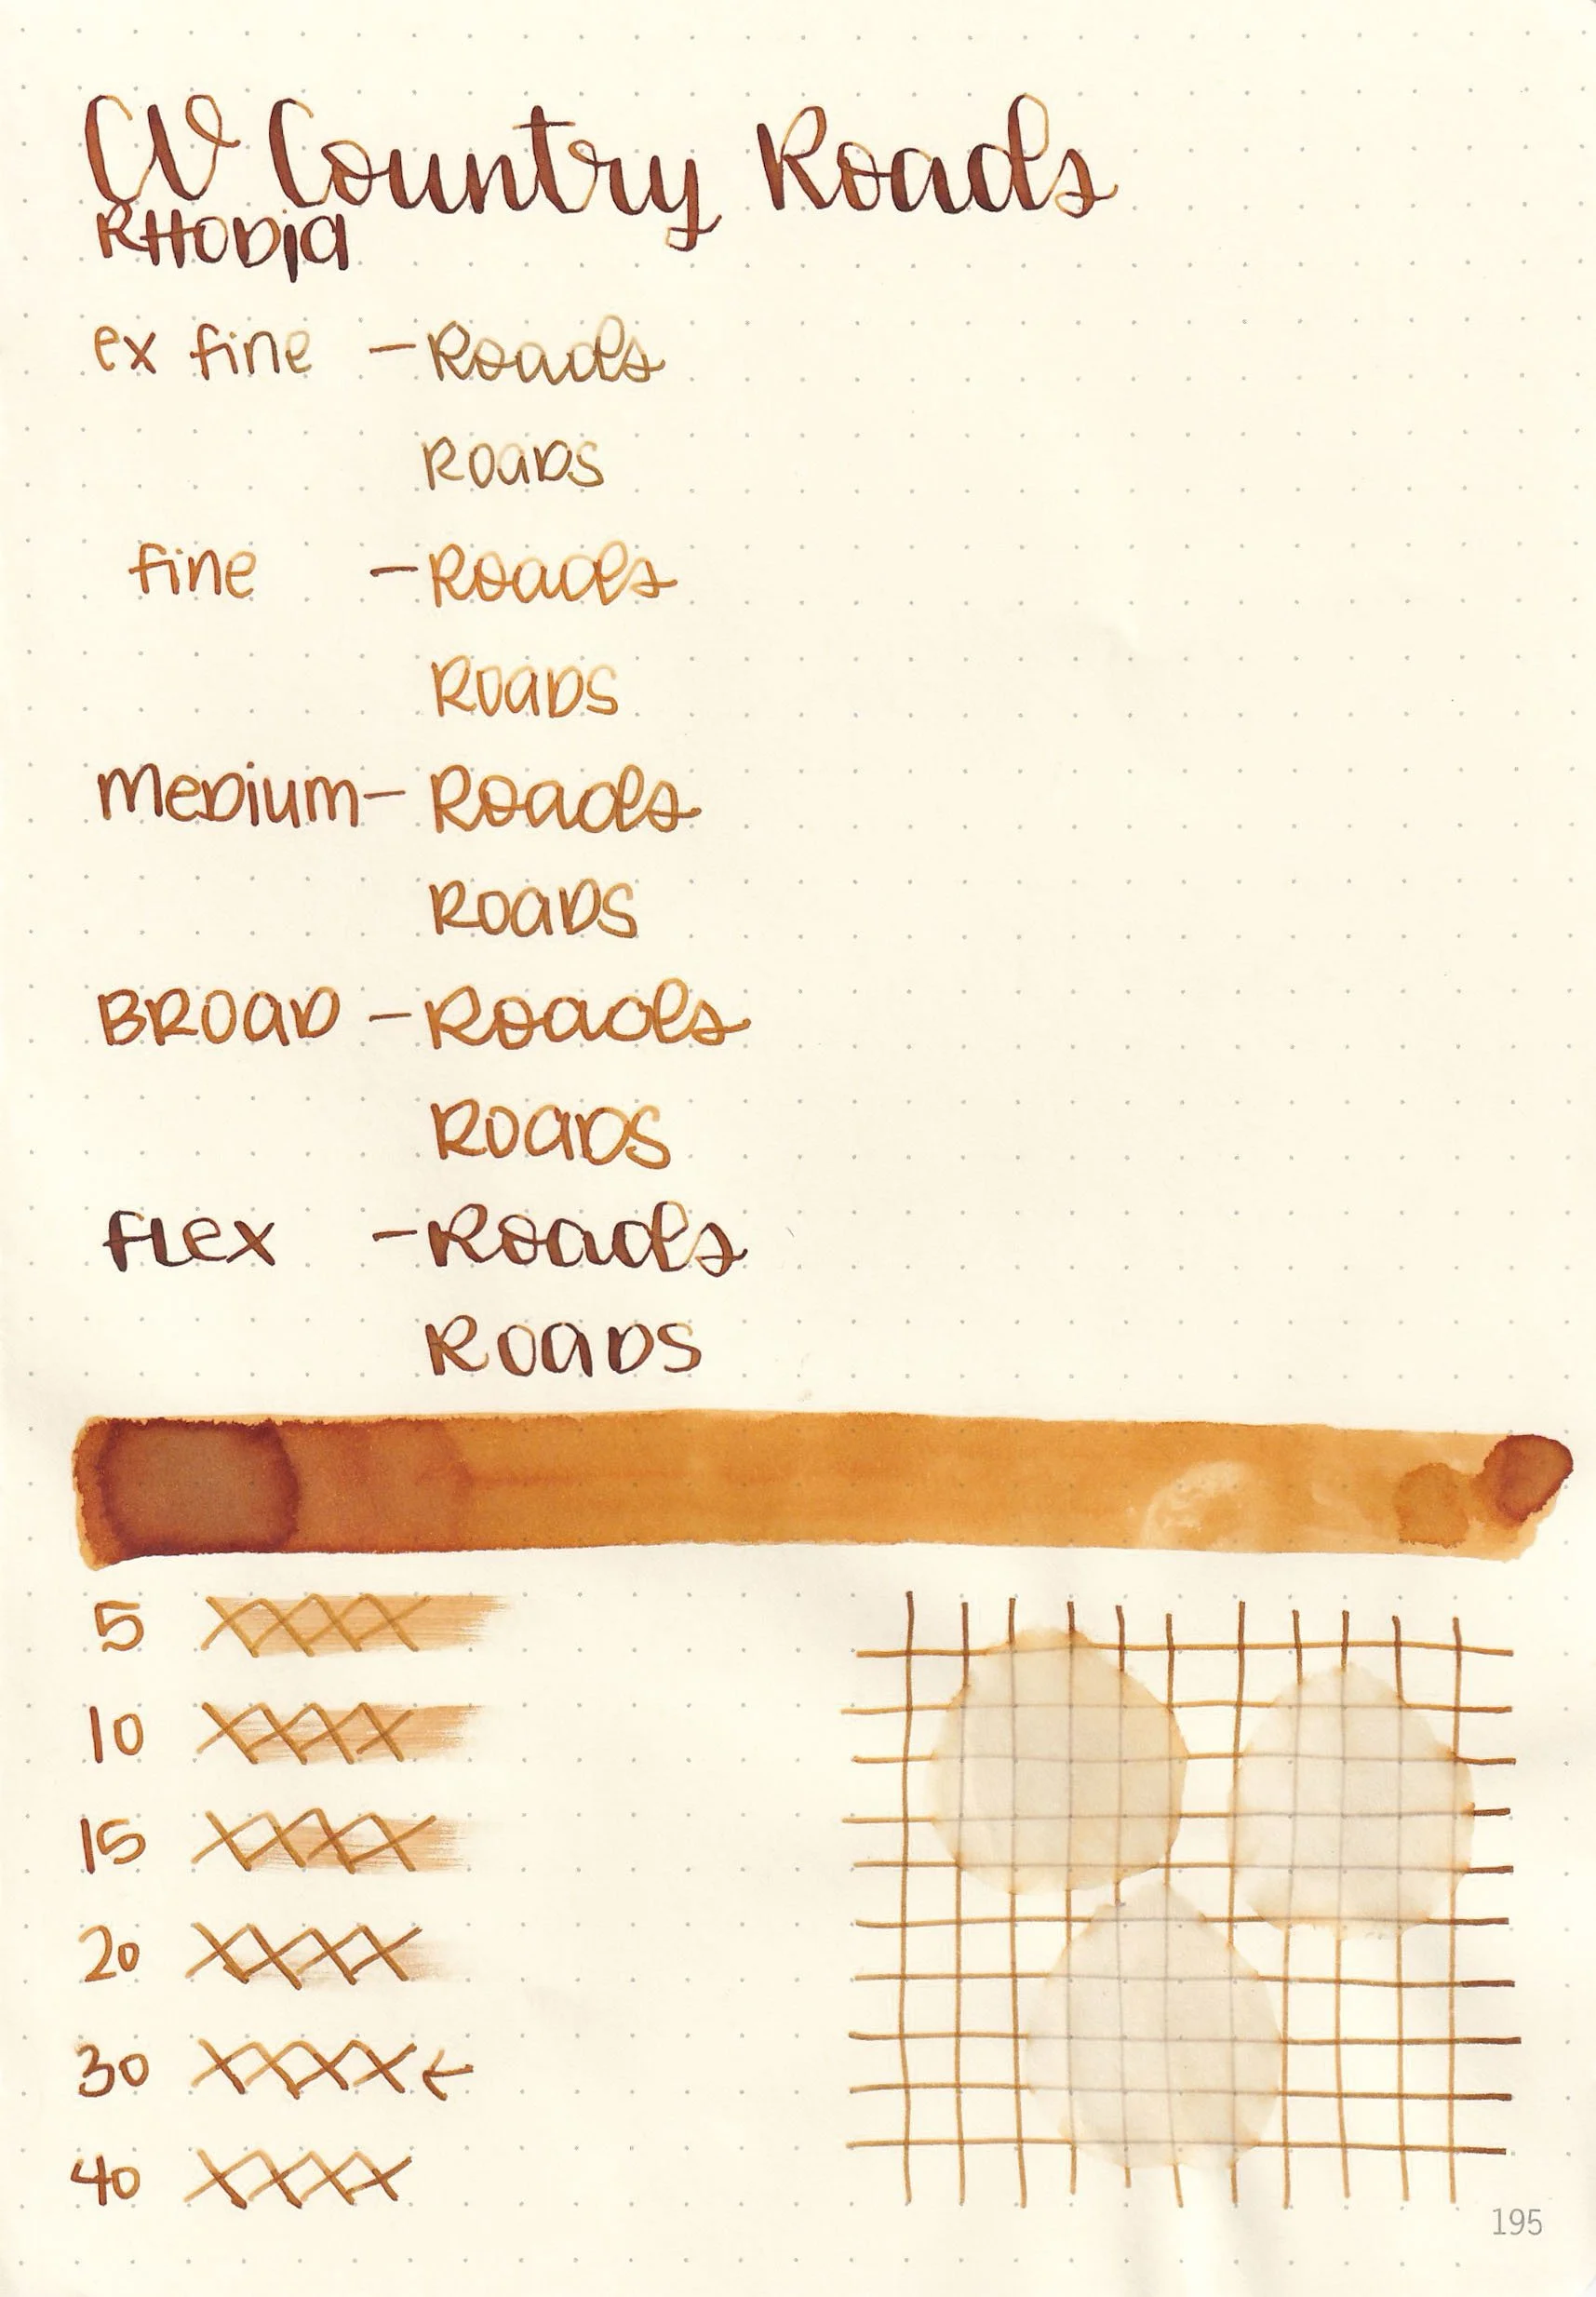 CV Country Roads
RHODIA
ex fine - Roads
ROADS
fine - Roads
ROADS
Medium - Roads
ROADS
BROAD - Roads
ROADS
FLEX - Roads
ROADS
5 XXXX
10 XXXX
15 XXXX
20 XXXX
30 XXXX ←
40 XXXX
195